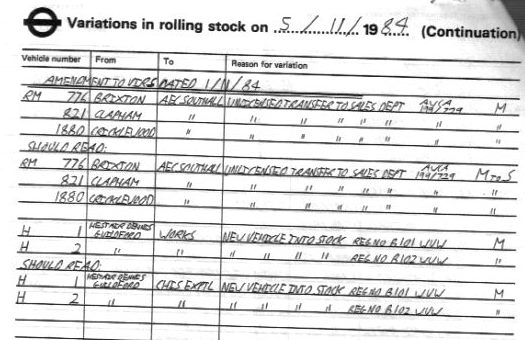 Variations in rolling stock on 5/11/1984 (Continuation)
Vehicle number From To Reason for variation
AMENDMENT TO VIRS DATED 1/11/84
RM 776 BRIXTON AEC SOUTHALL UNLICENSED TRANSFER TO SALES DEPT 199/729 M
821 CLAPHAM " " " " " " " "
1880 CRICKLEWOOD " " " " " " " "
SHOULD READ:
RM 776 BRIXTON AEC SOUTHALL UNLICENSED TRANSFER TO SALES DEPT 199/729 M to S
821 CLAPHAM " " " " " " " "
1880 CRICKLEWOOD " " " " " " " "
H 1 HESTAIR DENNIS GUILDFORD WORKS NEW VEHICLE INTO STOCK REG NO B101 WUW M
H 2 " " " " " " REG NO B102 WUW "
SHOULD READ:
H 1 HESTAIR DENNIS GUILDFORD CHIS EXPTL NEW VEHICLE INTO STOCK REG NO B101 WUW M
H 2 " " " " " " REG NO B102 WUW "